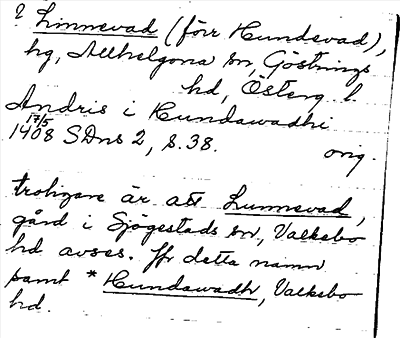 ? Linnevad (förr Hundevad),
hg, Allhelgona sn, Göstrings
hd, Österg. l.
Andris i Hundawadhi
17/5
1408 SDns 2, s. 38. orig.
troligare är att Lunnevad,
gård i Sjögestads sn, Valkebo
hd avses. Jfr detta namn
samt * Hundawadh, Valkebo
hd.